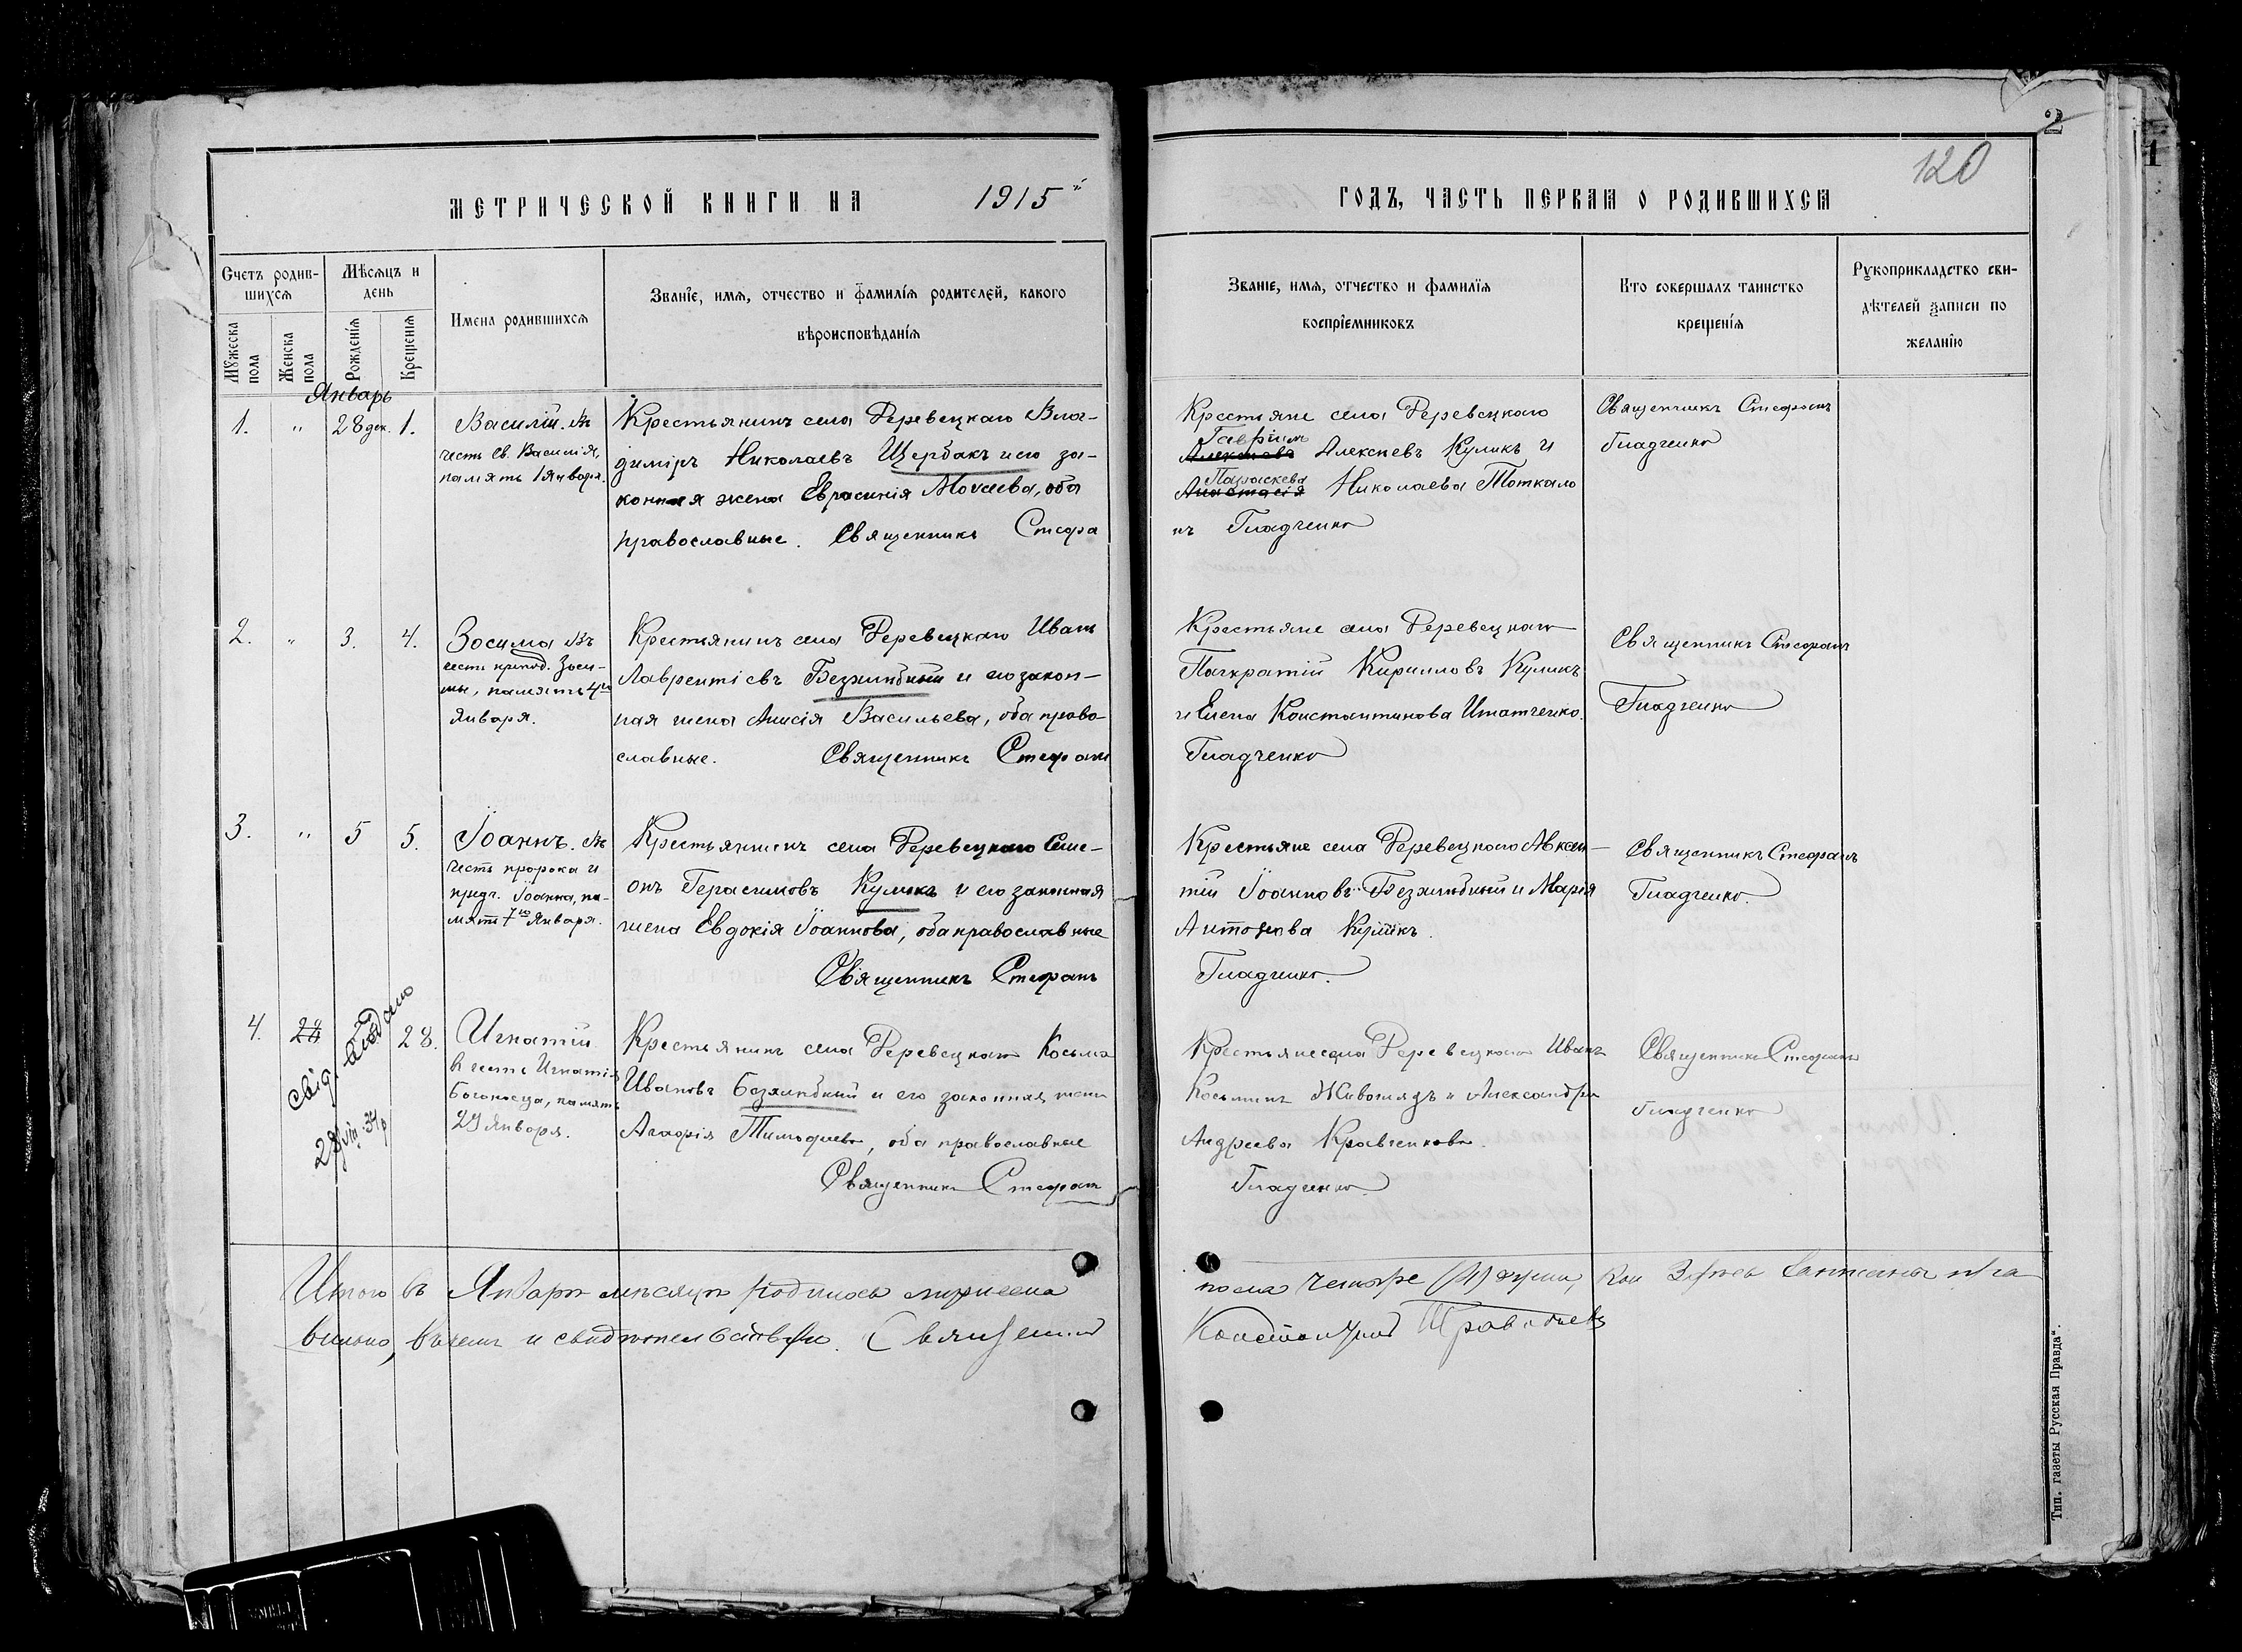 2
120
1
МЕТРИЧЕСКОЙ КНИГИ НА 1915й ГОДЪ, ЧАСТЬ ПЕРВАЯ О РОДИВШИХСЯ
Счетъ родив-
шихся
Мѣсяцъ и
день
Мужеска
пола
Женска
пола
Рожденія
Крещенія
Имена родившихся
Званіе, имя, отчество и фамилія родителей, какого
вѣроисповѣданія
Званіе, имя, отчество и фамилія
воспріемниковъ
Кто совершалъ таинство
крещенія
Рукоприкладство сви-
дѣтелей записи по
желанію
Январь
1. " 28 дек. 1.
Василій. Въ
честь св. Василія,
память 1 января.
Крестьянинъ села Деревецкаго Вла-
димiръ Николаевъ Щербакъ и его за-
конная жена Евфросинія Моисеева, оба
православные. Священникъ Стефа
Крестьяне села Деревецкаго
Гавріилъ
Алексѣевъ Алексѣевъ Куликъ и
Параскева
Анастасія Николаева Тоткало
нъ Гладченко
Священникъ Стефанъ
Гладченко
2. " 3. 4.
Зосима. Въ
честь препод. Зоси-
мы, память 4го
Января.
Крестьянинъ села Деревецкаго Иванъ
Лаврентіевъ Безхлѣбный и его закон-
ная жена Анисія Васильева, оба право-
славные. Священникъ Стефанъ
Крестьяне села Деревецкаго
Панкратій Кирилловъ Куликъ
и Елена Константинова Игнатченко.
Гладченко
Священникъ Стефанъ
Гладченко
3. " 5 5.
Іоаннъ. Въ
честь пророка и
предт. Іоанна, па-
мять 7го Января.
Крестьянинъ села Деревецкаго Симе-
онъ Герасимовъ Куликъ и его законная
жена Евдокія Іоаннова, оба православные
Священникъ Стефанъ
Крестьяне села Деревецкаго Авксен-
тій Іоанновъ Безхлѣбный и Марія
Антонова Куликъ.
Гладченко.
Священникъ Стефанъ
Гладченко.
4. 28 28.
Игнатій
въ честь Игнатія
Богоносца, память
29 Января.
Крестьянинъ села Деревецкаго Косьма
Ивановъ Безхлѣбный и его законная жена
Агафія Тимофиева, оба православные
Священникъ Стефанъ
Крестьяне села Деревецкаго Иванъ
Косьминъ Живоглядъ и Александра
Андреева Кравченкова.
Гладченко.
Священникъ Стефанъ
Гладченко
Итого въ Январѣ мѣсяцѣ родилось мужеска
пола четыре (4) души, кои здѣсь записаны пра
вильно, въ чемъ и свидѣтельствую. Священникъ
Константинъ
Тип. газеты „Русская Правда“.